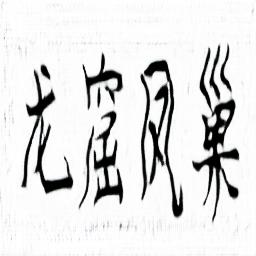 龙窟凤巢